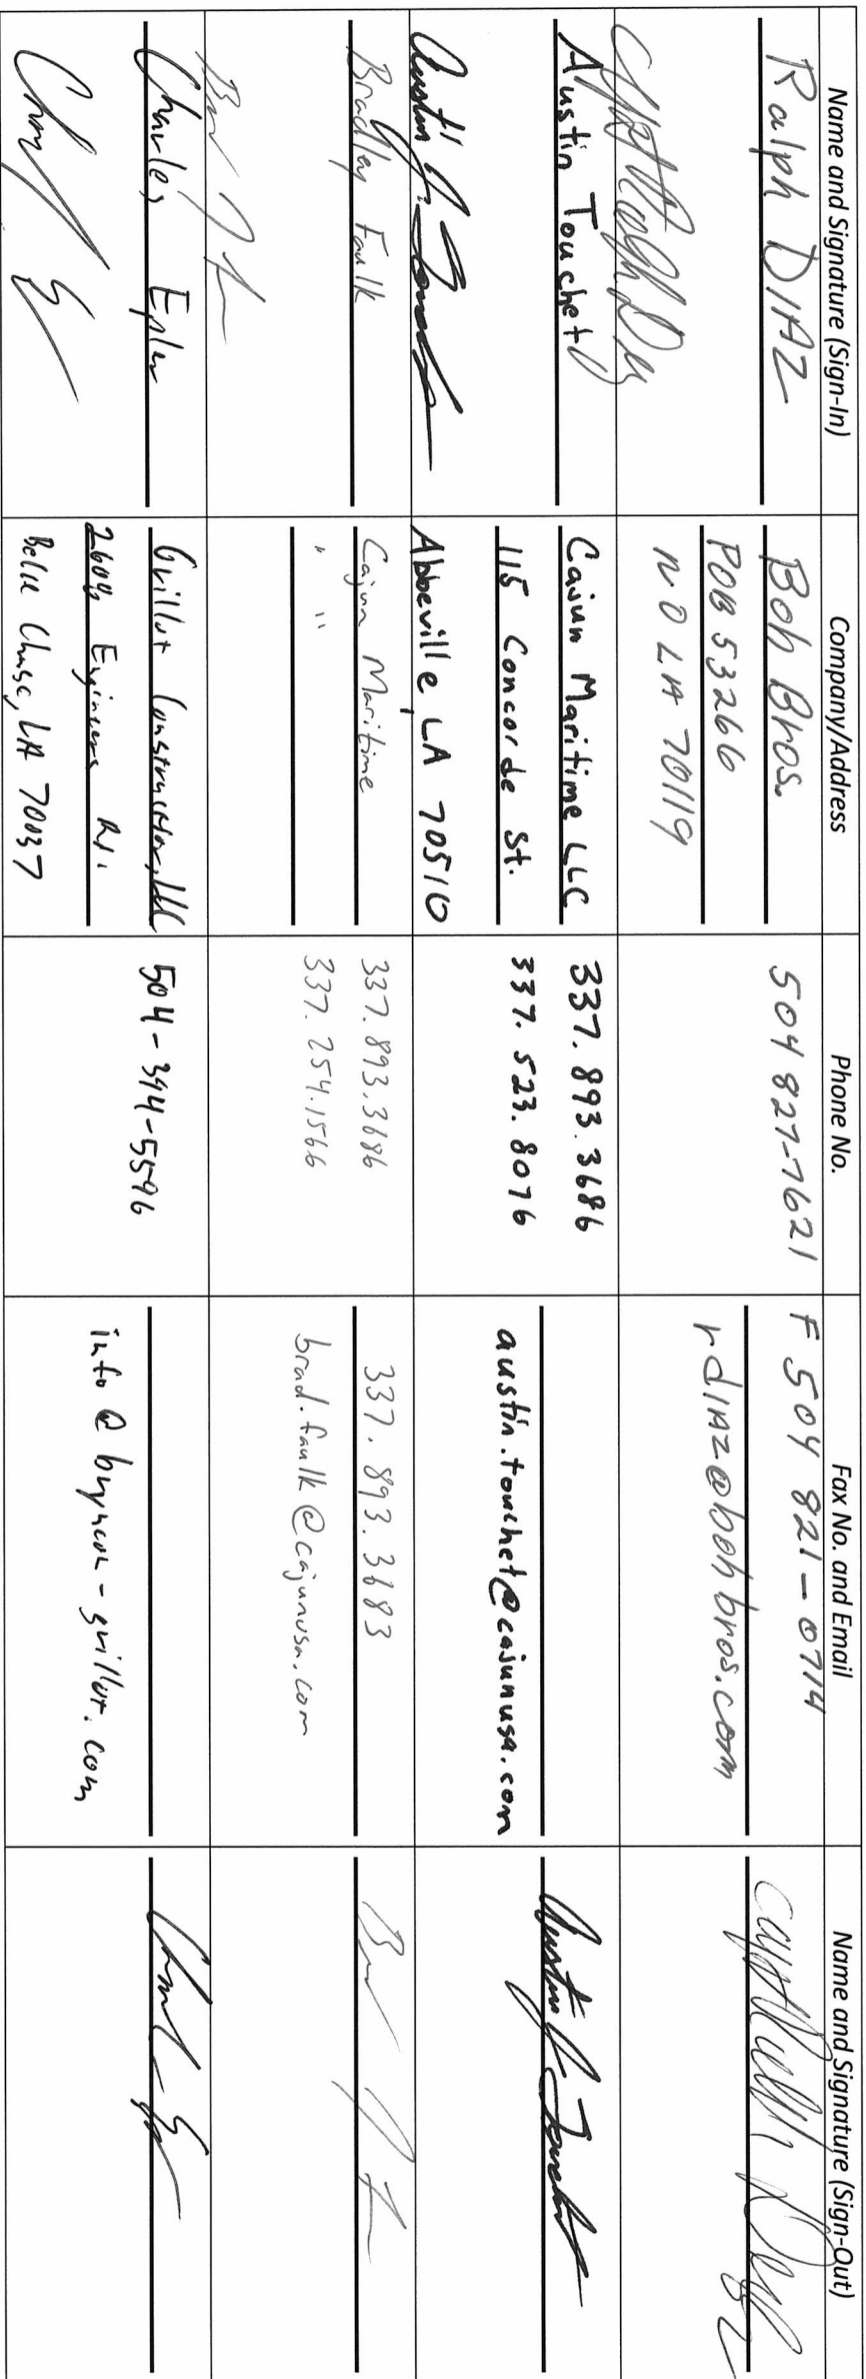 Name and Signature (Sign-In) Company/Address Phone No. Fax No. and Email Name and Signature (Sign-Out)
Ralph DIAZ
Boh Bros.
POB 53266
NO LA 70119
504 827-7621
F 504 821-0714
rdiaz@bohbros.com
Austin Touchet
Cajun Maritime LLC
115 Concorde St.
Abbeville, LA 70510
337.893.3686
337.523.8076
austin.touchet@cajunusa.com
Bradley Faulk
Cajun Maritime
" "
337.893.3686
337.254.1566
337.893.3683
brad.faulk@cajunusa.com
Charles
Construction, LLC
Engineers Rd.
Belle Chase, LA 70037
504-394-5596